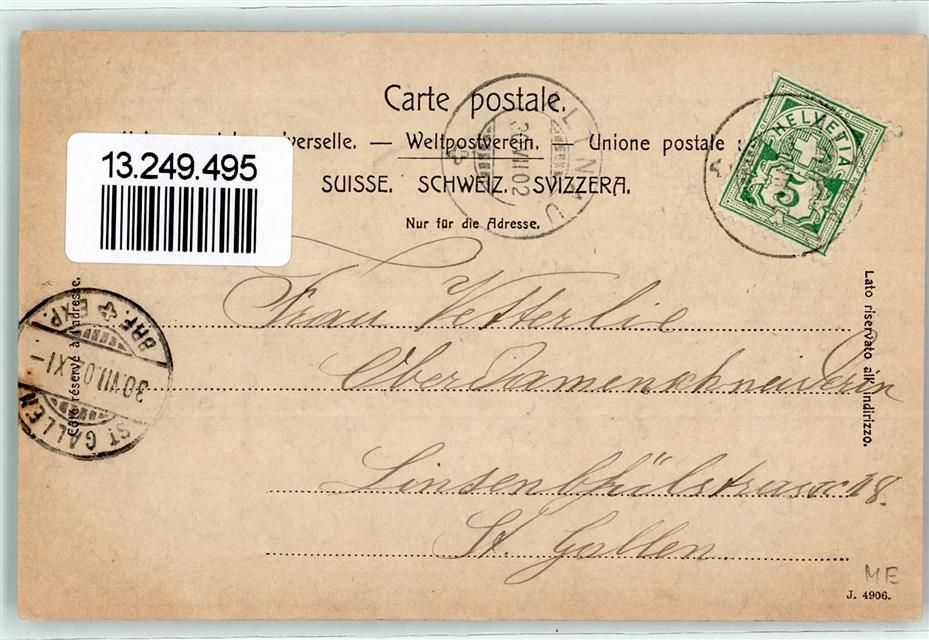 Carte postale.
verselle. — Weltpostverein. — Unione postale
SUISSE. SCHWEIZ. SVIZZERA.
Nur für die Adresse.
13.249.495
HELVETIA
5
ILLNAU
30 VII 02
ST. GALLEN
30.VII.02.XI-
BRF. EXP.
Côté réservé à l'adresse.
Lato riservato all'indirizzo.
Frau Vetterlie
Ober Damenschneiderin
Linsenbühlstrasse 18.
St. Gallen.
ME
J. 4906.